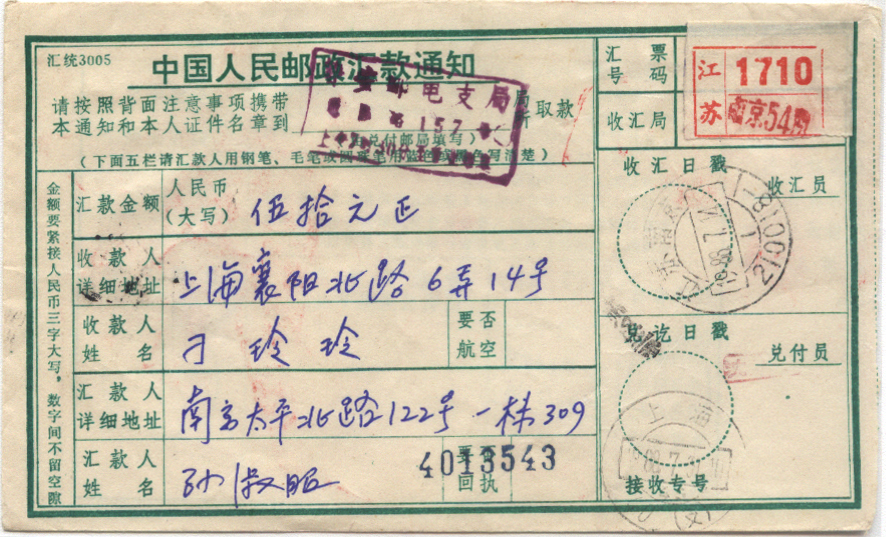 汇统3005
中国人民邮政汇款通知
请按照背面注意事项携带
本通知和本人证件名章到
局所取款
(由兑付邮局填写)
(下面五栏请汇款人用钢笔、毛笔或圆珠笔用蓝色或黑色写清楚)
邮电支局
157
汇票号码
江苏
1710
南京54局
收汇局
金额要紧接人民币三字大写,数字间不留空隙
汇款金额
人民币(大写)
伍拾元正
收款人详细地址
上海襄阳北路6弄14号
收款人姓名
刁玲玲
要否航空
汇款人详细地址
南京太平北路122号一栋309
汇款人姓名
孙淑昭
要否回执
4013543
收汇日戳
收汇员
210018-1
兑讫日戳
兑付员
上海
接收专号